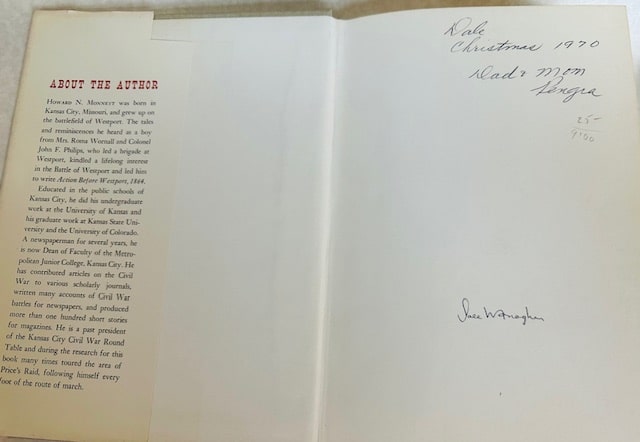 ABOUT THE AUTHOR
HOWARD N. MONNETT was born in
Kansas City, Missouri, and grew up on
the battlefield of Westport. The tales
and reminiscences he heard as a boy
from Mrs. Roma Wornall and Colonel
John F. Philips, who led a brigade at
Westport, kindled a lifelong interest
in the Battle of Westport and led him
to write Action Before Westport, 1864.
Educated in the public schools of
Kansas City, he did his undergraduate
work at the University of Kansas and
his graduate work at Kansas State Uni-
versity and the University of Colorado.
A newspaperman for several years, he
is now Dean of Faculty of the Metro-
politan Junior College, Kansas City. He
has contributed articles on the Civil
War to various scholarly journals,
written many accounts of Civil War
battles for newspapers, and produced
more than one hundred short stories
for magazines. He is a past president
of the Kansas City Civil War Round
Table and during the research for this
book many times toured the area of
Price's Raid, following himself every
foot of the route of march.
Dale
Christmas 1970
Dad & Mom
Pengra
25-